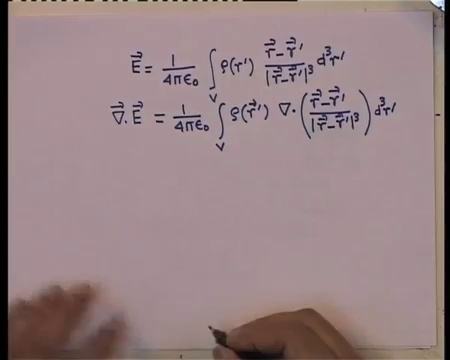 $\vec{E} = \frac{1}{4\pi\epsilon_0} \int_V \rho(r') \frac{\vec{r}-\vec{r}'}{|\vec{r}-\vec{r}'|^3} d^3r'$
$\vec{\nabla}.\vec{E} = \frac{1}{4\pi\epsilon_0} \int_V \rho(\vec{r}') \nabla. \left( \frac{\vec{r}-\vec{r}'}{|\vec{r}-\vec{r}'|^3} \right) d^3r'$